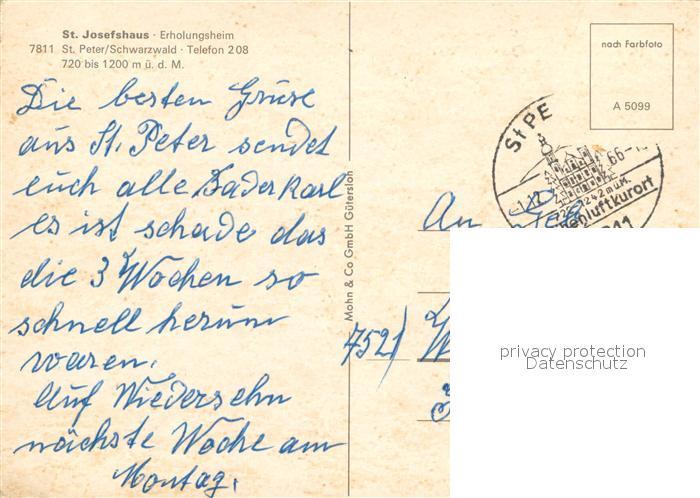 St. Josefshaus · Erholungsheim
7811 St. Peter/Schwarzwald · Telefon 208
720 bis 1200 m ü. d. M.
Die besten Grüse
aus St. Peter sendet
euch alle Bader Karl
es ist schade das
die 3 Wochen so
schnell herum
waren.
Auf Wiedersehn
nächste Woche am
Montag.
Mohn & Co GmbH Gütersloh
nach Farbfoto
A 5099
St PE
66-1
720-1242 m ü.M.
henluftkurort
An
7521
privacy protection
Datenschutz